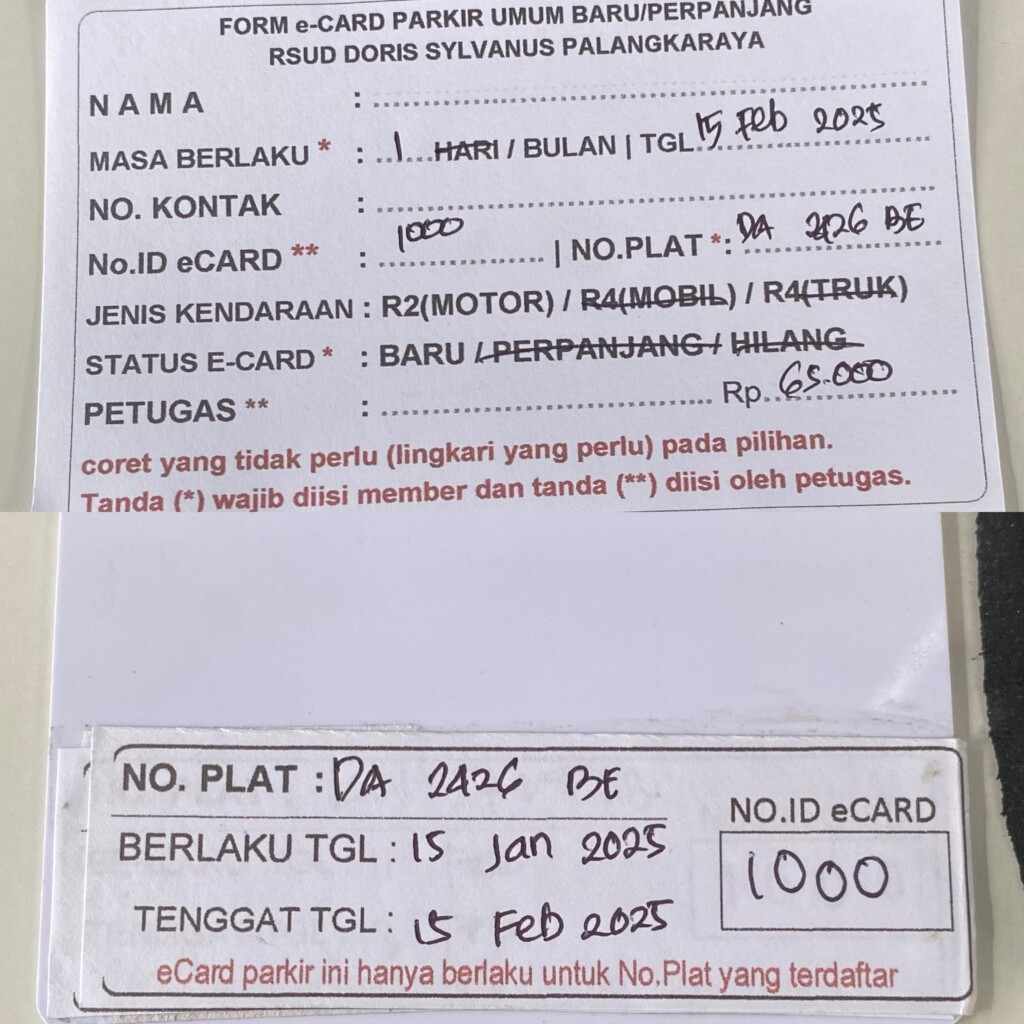 FORM e-CARD PARKIR UMUM BARU/PERPANJANG
RSUD DORIS SYLVANUS PALANGKARAYA
N A M A :
MASA BERLAKU * : 1 HARI / BULAN | TGL 15 Feb 2025
NO. KONTAK :
No.ID eCARD ** : 1000 | NO.PLAT *: DA 2426 BE
JENIS KENDARAAN : R2(MOTOR) / R4(MOBIL) / R4(TRUK)
STATUS E-CARD * : BARU / PERPANJANG / HILANG
PETUGAS ** : Rp. 65.000
coret yang tidak perlu (lingkari yang perlu) pada pilihan.
Tanda (*) wajib diisi member dan tanda (**) diisi oleh petugas.
NO. PLAT : DA 2426 BE
NO.ID eCARD
BERLAKU TGL : 15 Jan 2025
1000
TENGGAT TGL : 15 Feb 2025
eCard parkir ini hanya berlaku untuk No.Plat yang terdaftar